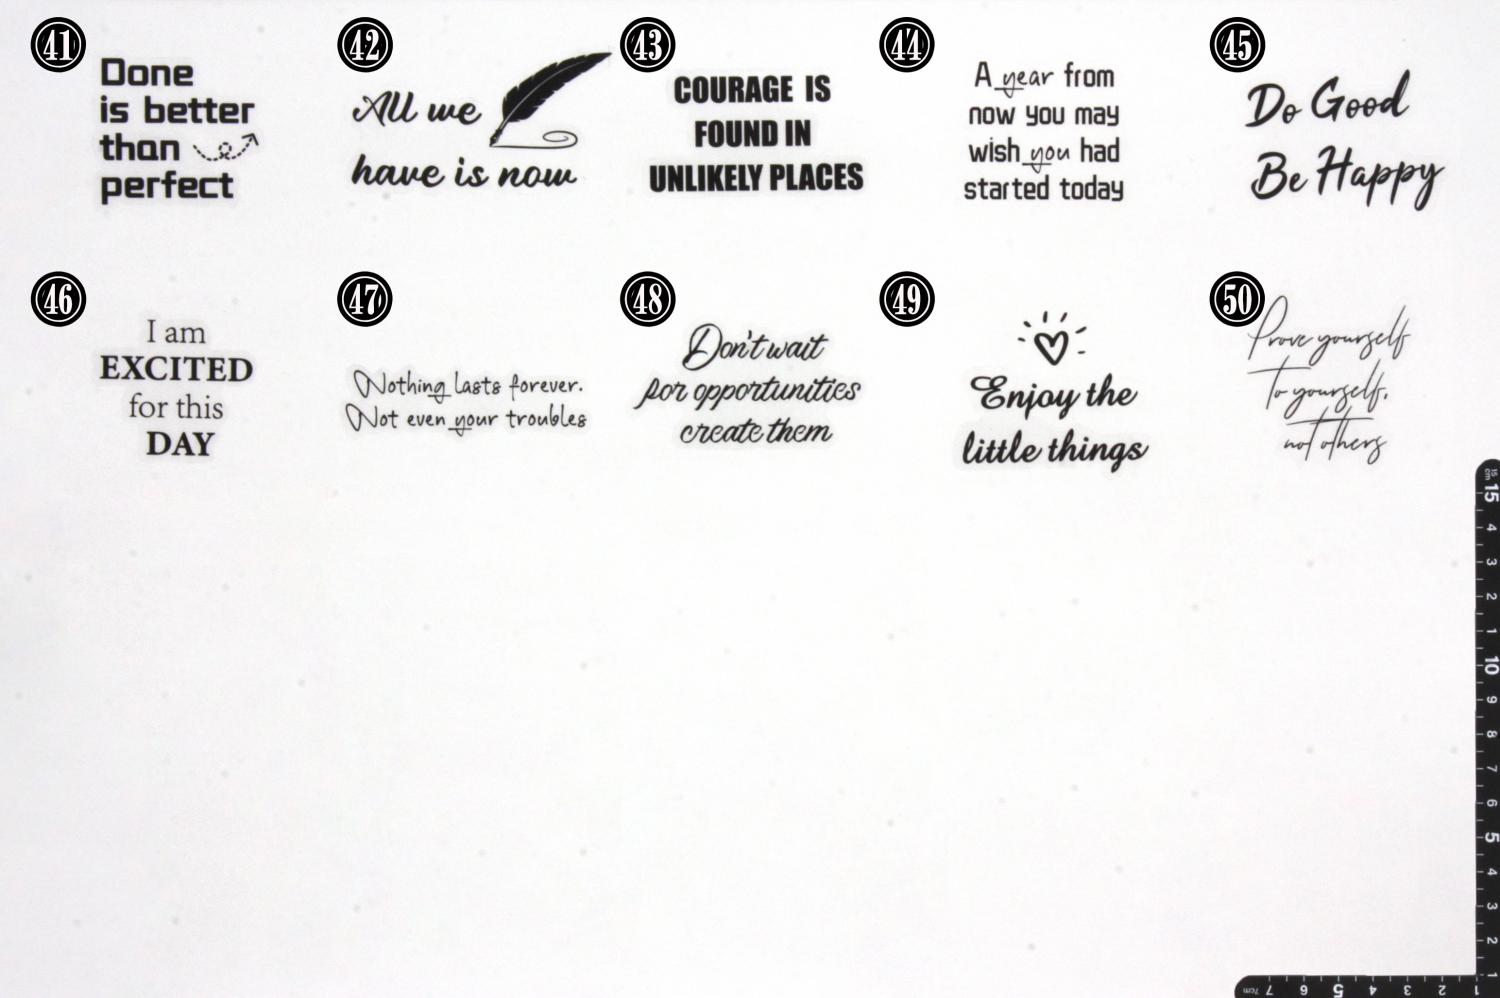 41
Done
is better
than
perfect
42
All we
have is now
43
COURAGE IS
FOUND IN
UNLIKELY PLACES
44
A year from
now you may
wish you had
started today
45
Do Good
Be Happy
46
I am
EXCITED
for this
DAY
47
Nothing lasts forever.
Not even your troubles
48
Don't wait
for opportunities
create them
49
Enjoy the
little things
50
Prove yourself
To yourself,
not others
15
cm
15
4
3
2
1
10
9
8
7
6
5
4
3
2
1
7cm 7 6 5 4 3 2 1